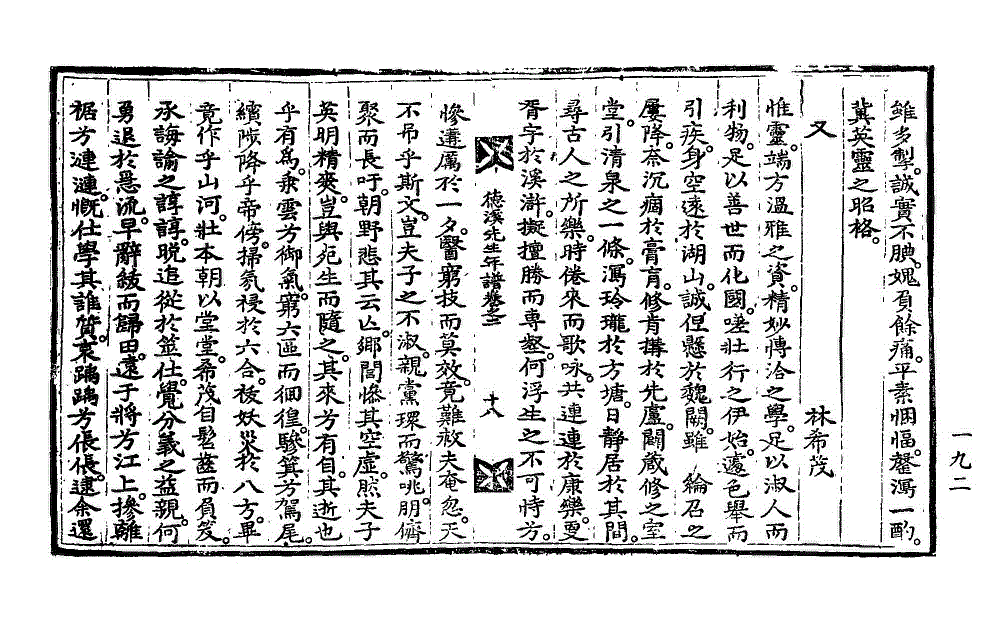 雖多掣。誠實不腆。媿負餘痛。平素悃愊。罄瀉一酌。
冀英靈之昭格。
又 林希茂
惟靈。端方溫雅之資。精妙博洽之學。足以淑人而
利物。足以善世而化國。嗟壯行之伊始。遽色擧而
引疾。身空遠於湖山。誠但懸於魏闕。雖 綸召之
屢降。奈沉痼於膏肓。修肯搆於先廬。闢藏修之室
堂。引清泉之一條。瀉玲瓏於方塘。日靜居於其間。
尋古人之所樂。時倦來而歌咏。共連連於康樂。更
胥宇於溪滸。擬擅勝而專壑。何浮生之不可恃兮。
德溪先生年譜卷之二 十八
慘遘厲於一夕。醫窮技而莫效。竟難救夫奄忽。天
不吊乎斯文。豈夫子之不淑。親黨環而驚咷。朋儕
聚而長吁。朝野悲其云亡。鄕閭慘其空虛。然夫子
英明精爽。豈與死生而隨之。其來兮有自。其逝也
乎有爲。乘雲兮御氣。窮六區而徊徨。驂箕兮駕尾。
續陟降乎帝傍。掃氛祲於六合。祓妖災於八方。畢
竟作乎山河。壯本朝以堂堂。希茂自髫齡而負笈。
承誨諭之諄諄。脫追從於筮仕。覺分義之益親。何
勇退於急流。早辭綾而歸田。遠于將兮江上。摻離
裾兮漣漣。慨仕學其誰質。哀踽踽兮倀倀。逮余還
一九二